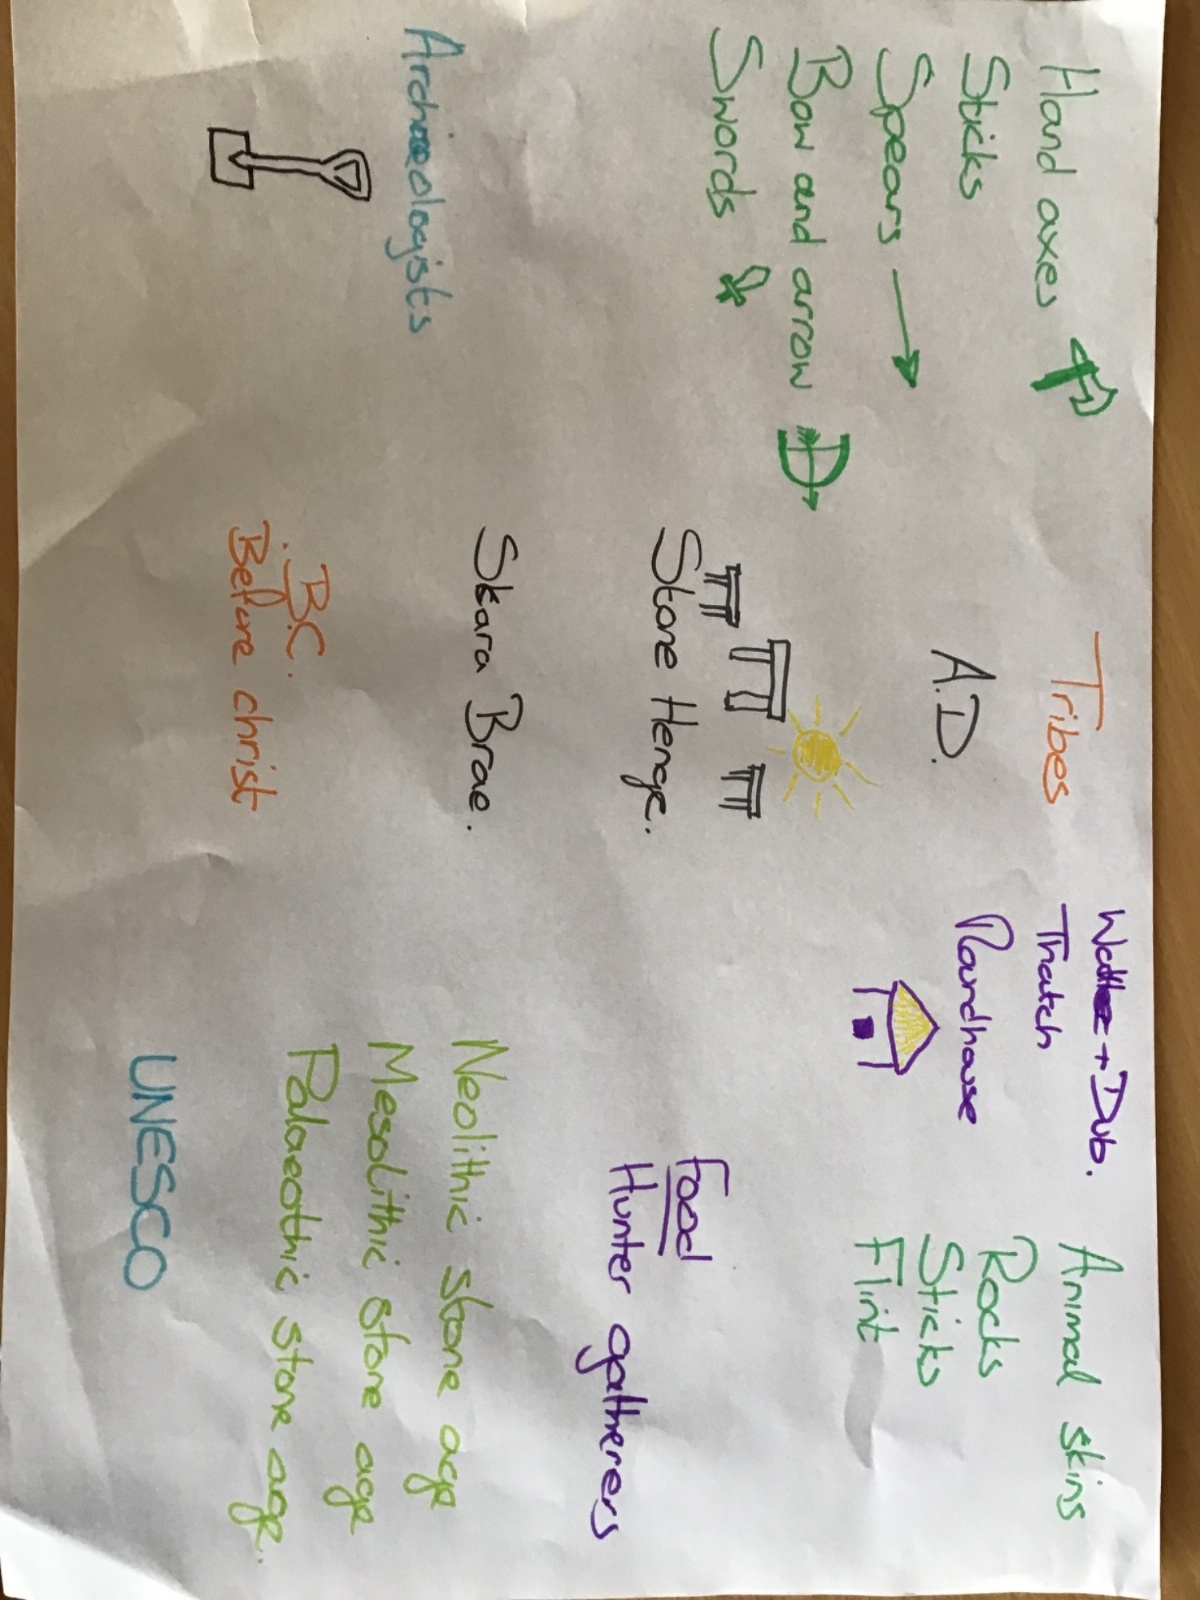 Hand axes
Sticks
Spears
Bow and arrow
Swords
Archaeologists
Tribes
A.D.
Stone Henge.
Skara Brae.
B.C.
Before christ
Thatch
Roundhouse
Animal skins
Rocks
Sticks
Flint
Food
Hunter gatherers
Neolithic stone age
Mesolithic stone age
Palaeothic stone age.
UNESCO